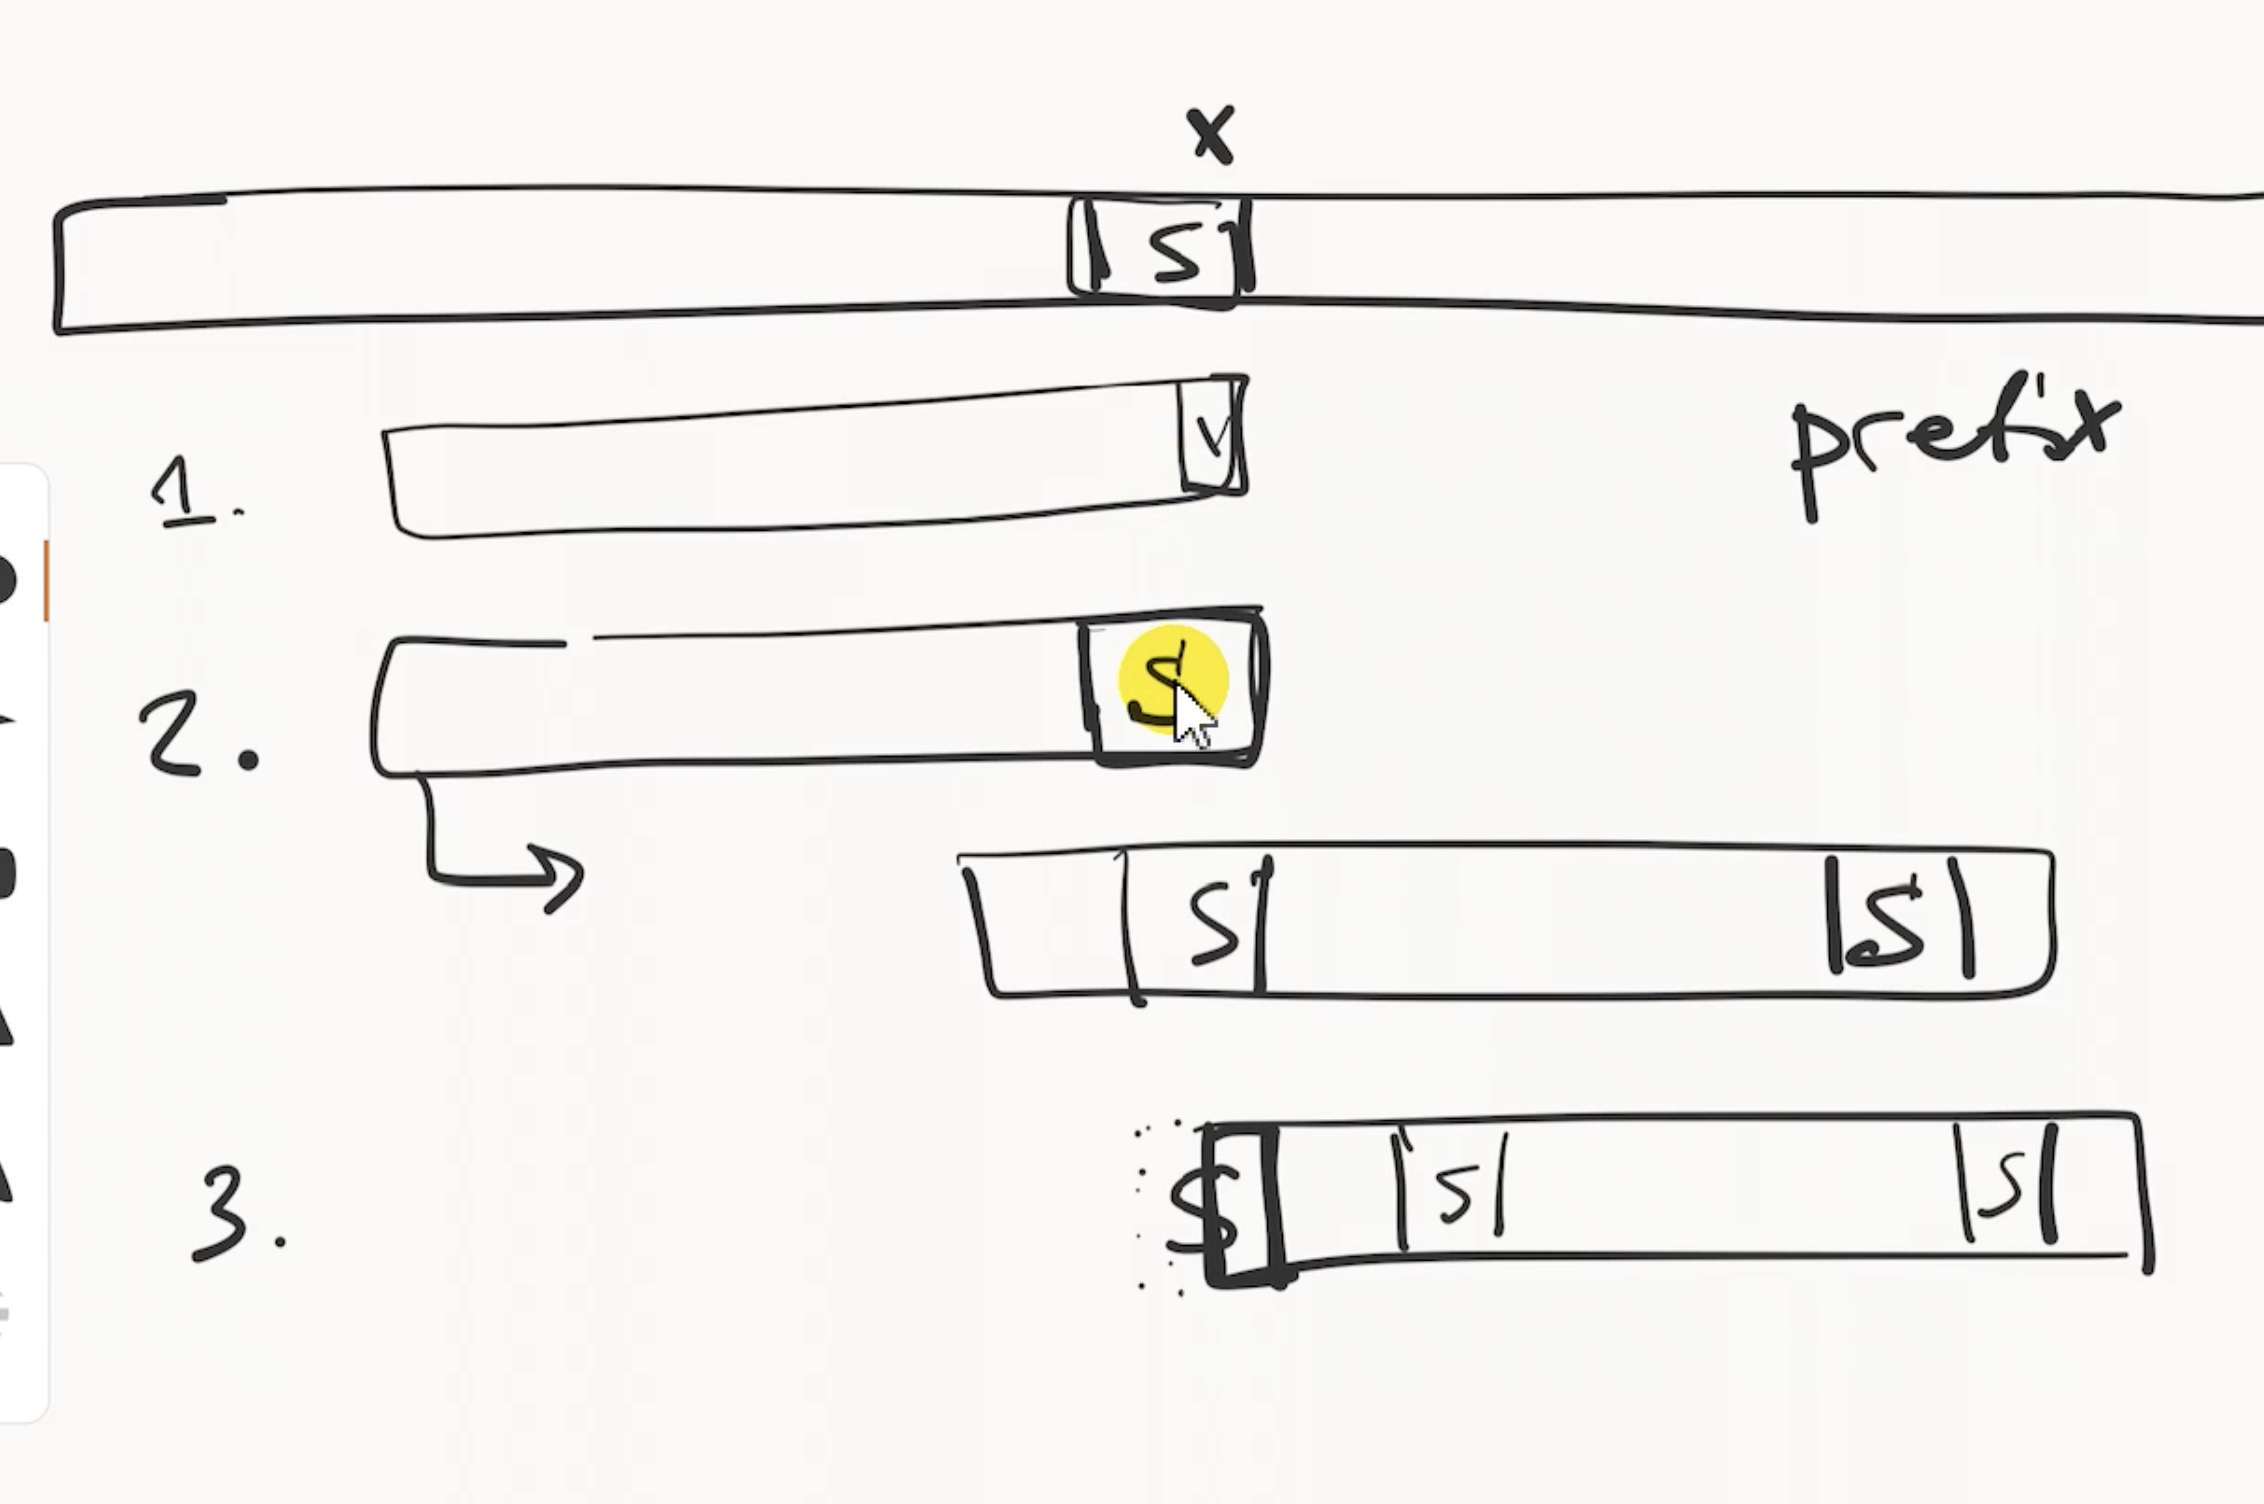 x
S
1. v
prefix
2. S
S S
3. S S S